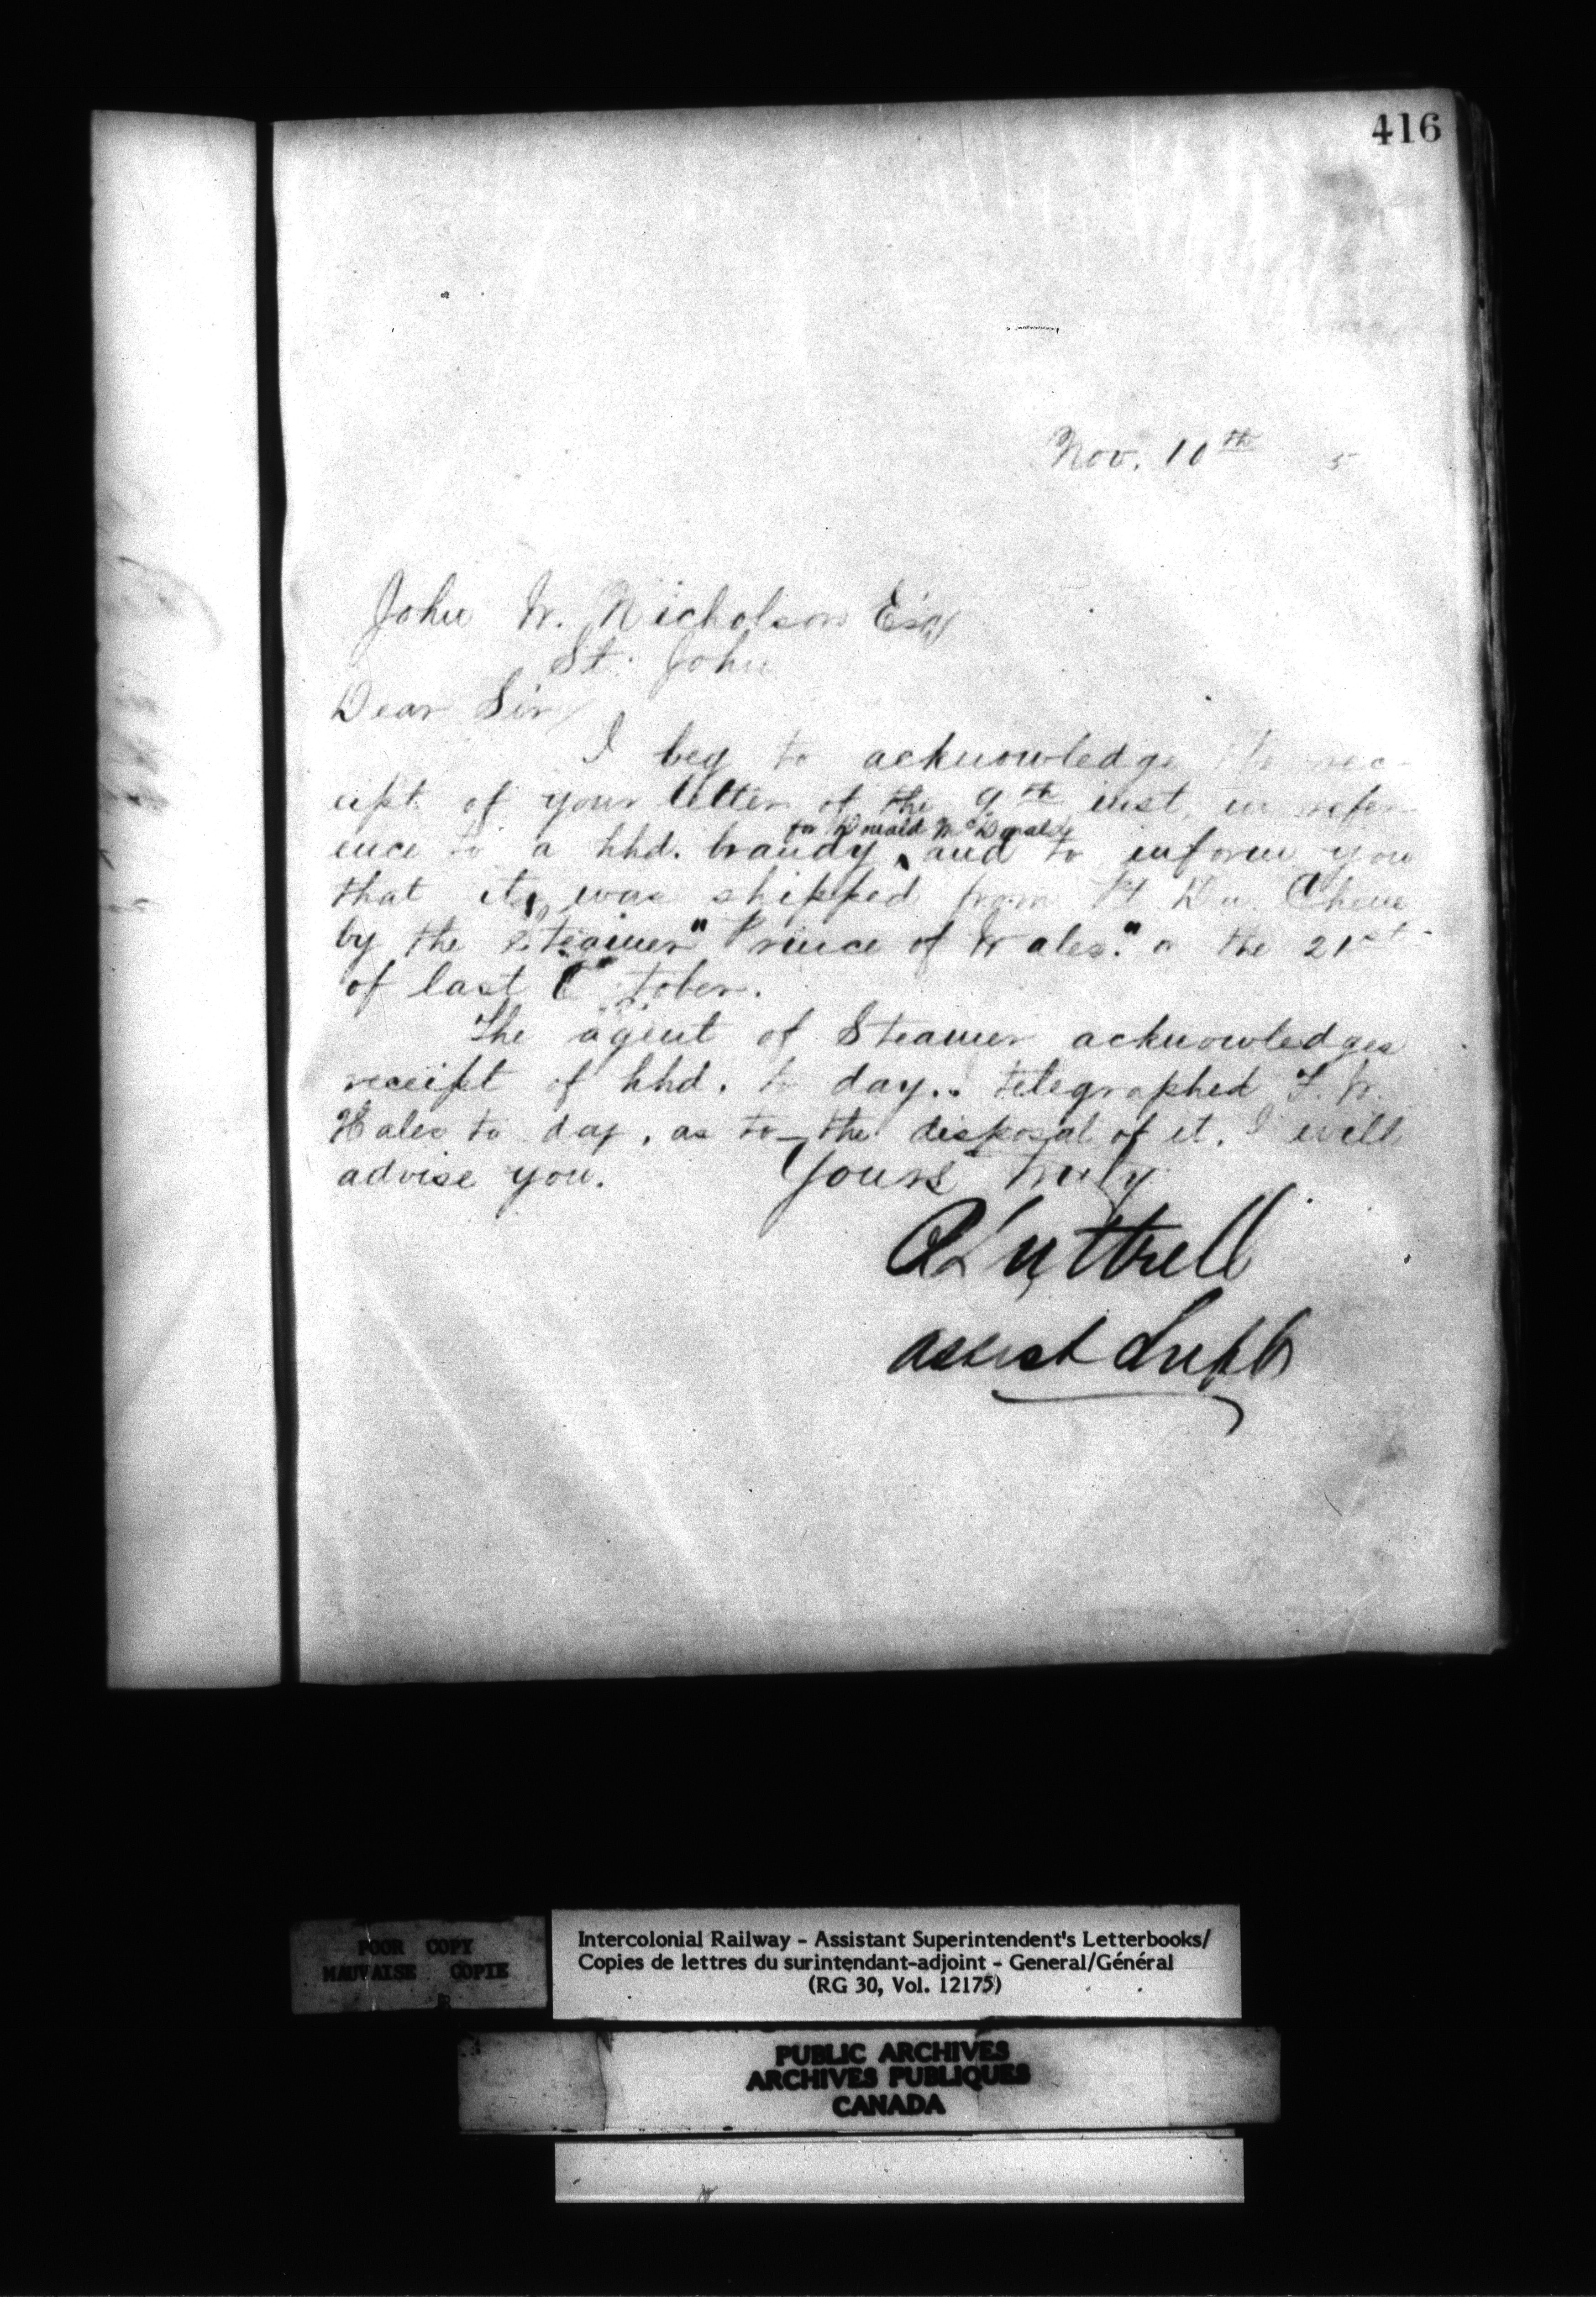 416
Nov. 10th 5
John W. Nicholson Esq
St. John
Dear Sir/
I beg to acknowledge the rec-
eipt of your letter of the 9th inst, in refer
for Donald McDonald
ence to a hhd. brandy, and to inform you
that it was shipped from Pt Du Chene
by the Steamer "Prince of Wales." on the 21st
of last October.
The agent of Steamer acknowledges
receipt of hhd. to day.. telegraphed F. W.
Hales to day, as to the disposal of it. I will
advise you. Yours truly
A Luttrell
Assist Supt
POOR COPY
MAUVAISE COPIE
Intercolonial Railway - Assistant Superintendent's Letterbooks/
Copies de lettres du surintendant-adjoint - General/Général
(RG 30, Vol. 12175)
PUBLIC ARCHIVES
ARCHIVES PUBLIQUES
CANADA